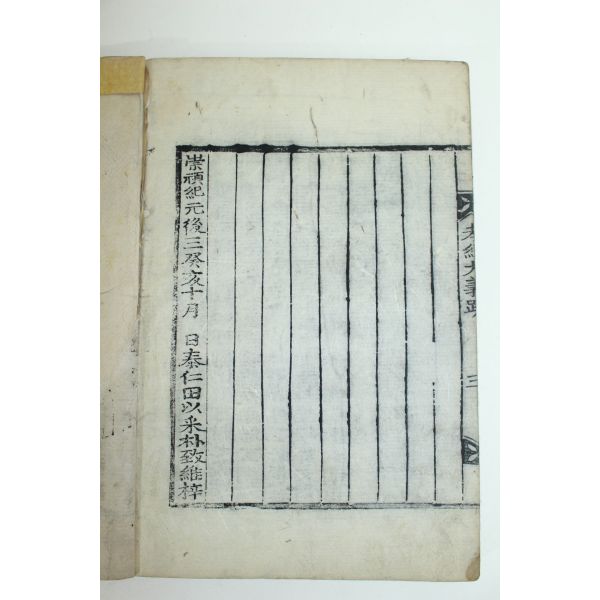 孝經大義跋 三
崇禎紀元後三癸亥十月 日泰仁田以采朴致維梓